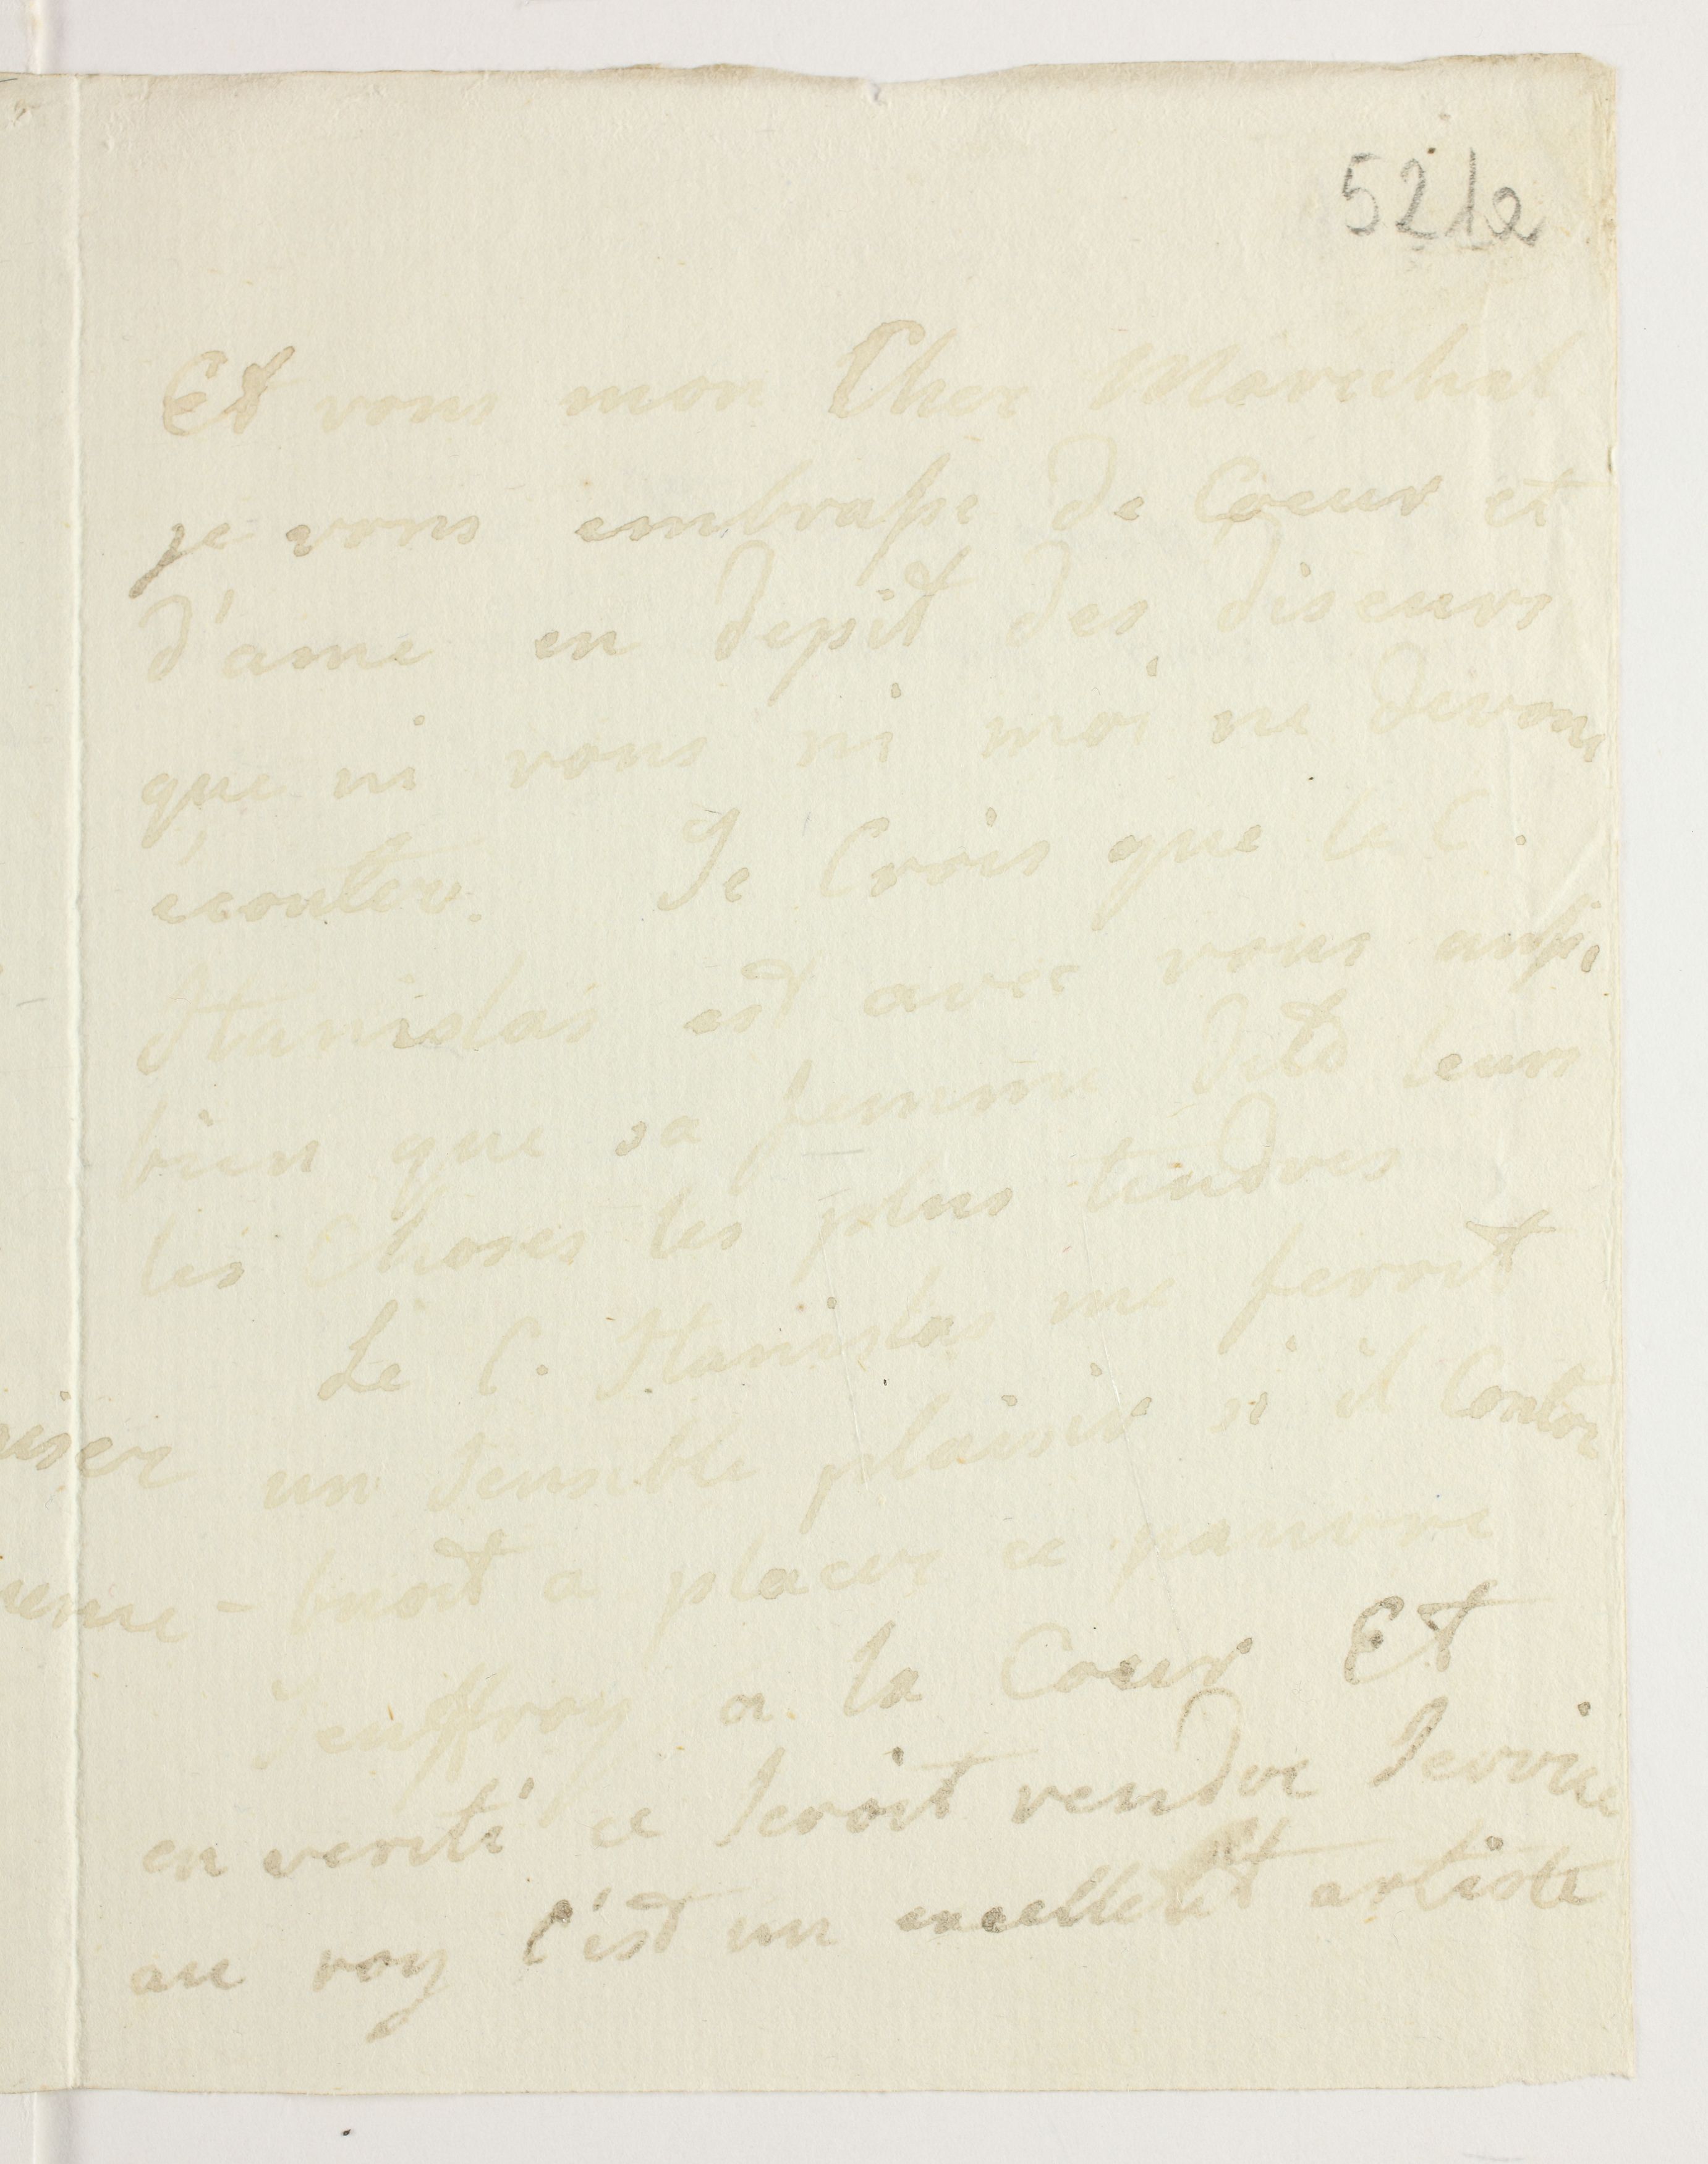 521a
Et vous mon Cher Marechal
je vous embrasse de Coeur et
d'ame en depit des diseurs
que ni vous ni moi ne devons
écouter. Je Crois que le C.
Stanislas est avec vous aussi
bien que sa femme dite leurs
les Choses les plus tendres
Le C. Stanislas me feroit
un sensible plaisir si il Contri
buoit a placer ce pauvre
Jeuffroy a la Cour Et
en verité ce seroit rendre service
au roy C'est un excellent artiste